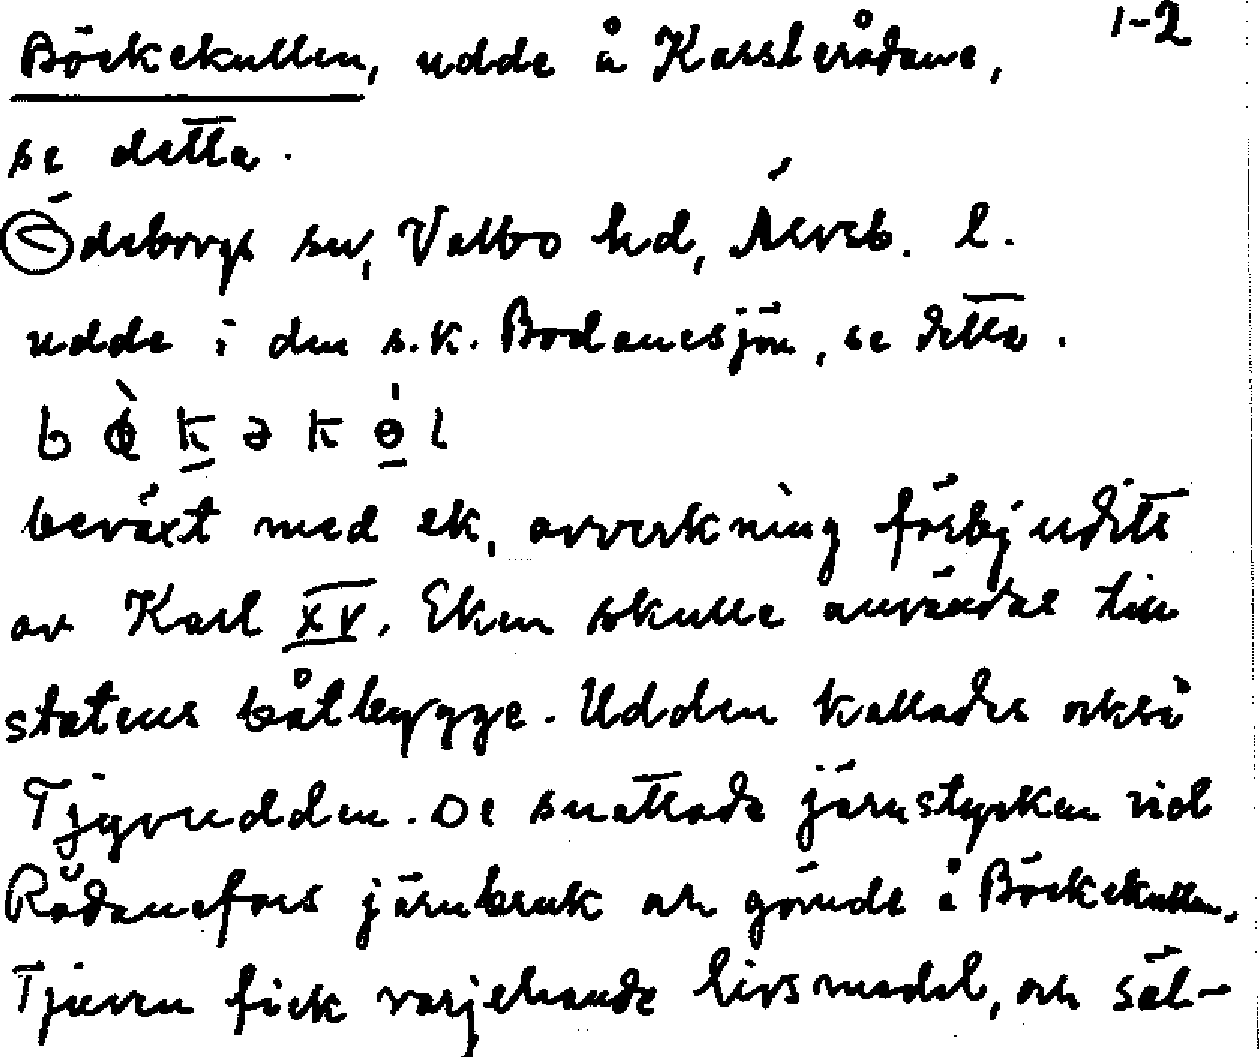 1-2
Böckekullen, udde å Kasslerådane,
se detta.
Ödeborgs sn, Valbo hd, Älvsb. l.
udde i den s.k. Bodanesjön, se detta.
b ø̀ k ə k ɵ́ l
beväxt med ek, avverkning förbjudits
av Karl XV. Eken skulle användas till
statens båtbygge. Udden kallades också
Tjyvudden. De snattade järnstycken vid
Rådanefors järnbruk och gömde å Böckekullen.
Tjuven fick varjehande livsmedel, och säl-